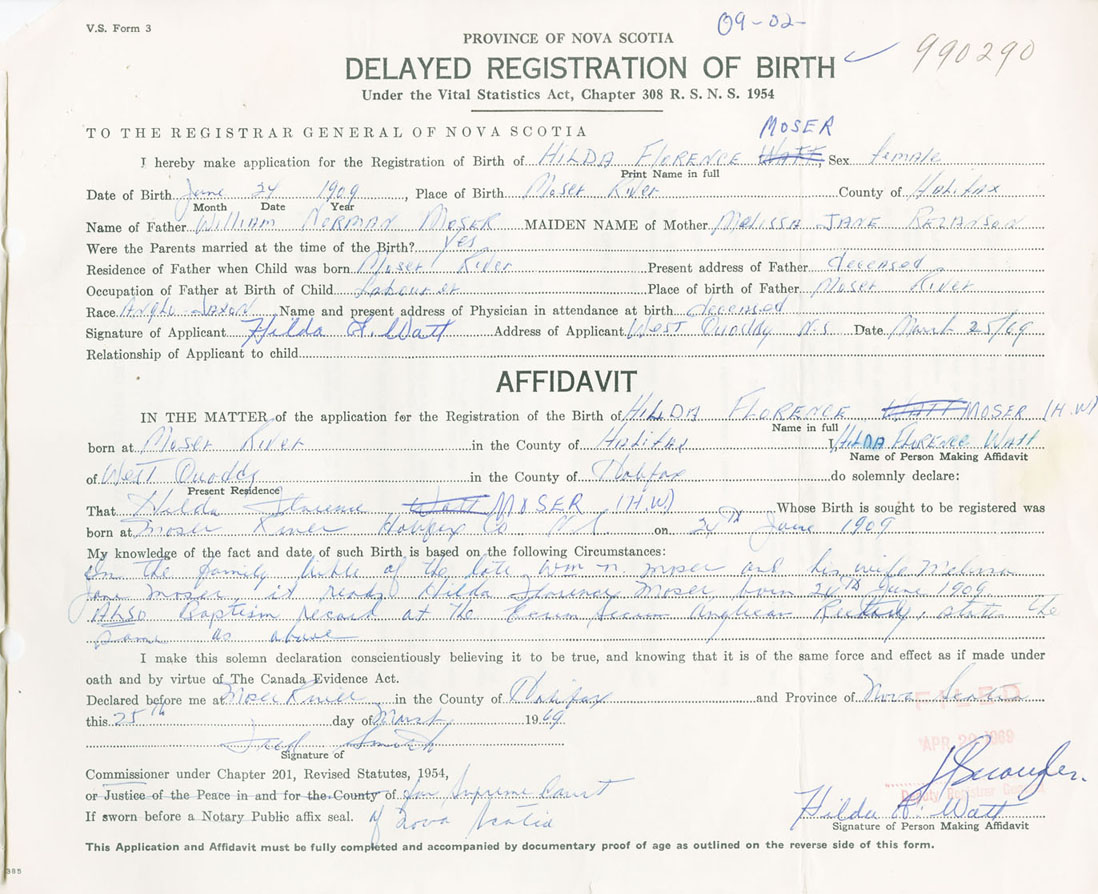 V.S. Form 3
09-02-
990290
PROVINCE OF NOVA SCOTIA
DELAYED REGISTRATION OF BIRTH
Under the Vital Statistics Act, Chapter 308 R. S. N. S. 1954
TO THE REGISTRAR GENERAL OF NOVA SCOTIA
MOSER
I hereby make application for the Registration of Birth of HILDA FLORENCE WATT, Sex female
Print Name in full
Date of Birth June 24 1909, Place of Birth Moser River County of Halifax
Month Date Year
Name of Father WILLIAM NORMAN MOSER MAIDEN NAME of Mother MELISSA JANE REZANSON
Were the Parents married at the time of the Birth? Yes
Residence of Father when Child was born Moser River Present address of Father deceased
Occupation of Father at Birth of Child Labourer Place of birth of Father Moser River
Race Anglo-Saxon Name and present address of Physician in attendance at birth deceased
Signature of Applicant Hilda F. Watt Address of Applicant West Quoddy N.S Date March 25/69
Relationship of Applicant to child
AFFIDAVIT
IN THE MATTER of the application for the Registration of the Birth of HILDA FLORENCE WATT MOSER (H.W)
Name in full
born at Moser River in the County of Halifax I, HILDA FLORENCE WATT
Name of Person Making Affidavit
of West Quoddy in the County of Halifax do solemnly declare:
Present Residence
That Hilda Florence Watt MOSER (H.W) Whose Birth is sought to be registered was
born at Moser River Halifax Co N.S. on 24th June 1909
My knowledge of the fact and date of such Birth is based on the following Circumstances:
In the family bible of the late Wm N. Moser and his wife Melissa
Jane Moser, it reads Hilda Florence Moser born 24th June 1909
ALSO Baptism record at the Ecum Secum Anglican Rectory, state the
same as above
I make this solemn declaration conscientiously believing it to be true, and knowing that it is of the same force and effect as if made under
oath and by virtue of The Canada Evidence Act.
Declared before me at Moser River in the County of Halifax and Province of Nova Scotia
this 25th day of March, 1969
FILED
APR 29 1969
Fred Smith
Signature of
Commissioner under Chapter 201, Revised Statutes, 1954,
or Justice of the Peace in and for the County of for Supreme Court
Deputy Registrar General
If sworn before a Notary Public affix seal. of Nova Scotia
Hilda F. Watt
Signature of Person Making Affidavit
This Application and Affidavit must be fully completed and accompanied by documentary proof of age as outlined on the reverse side of this form.
385